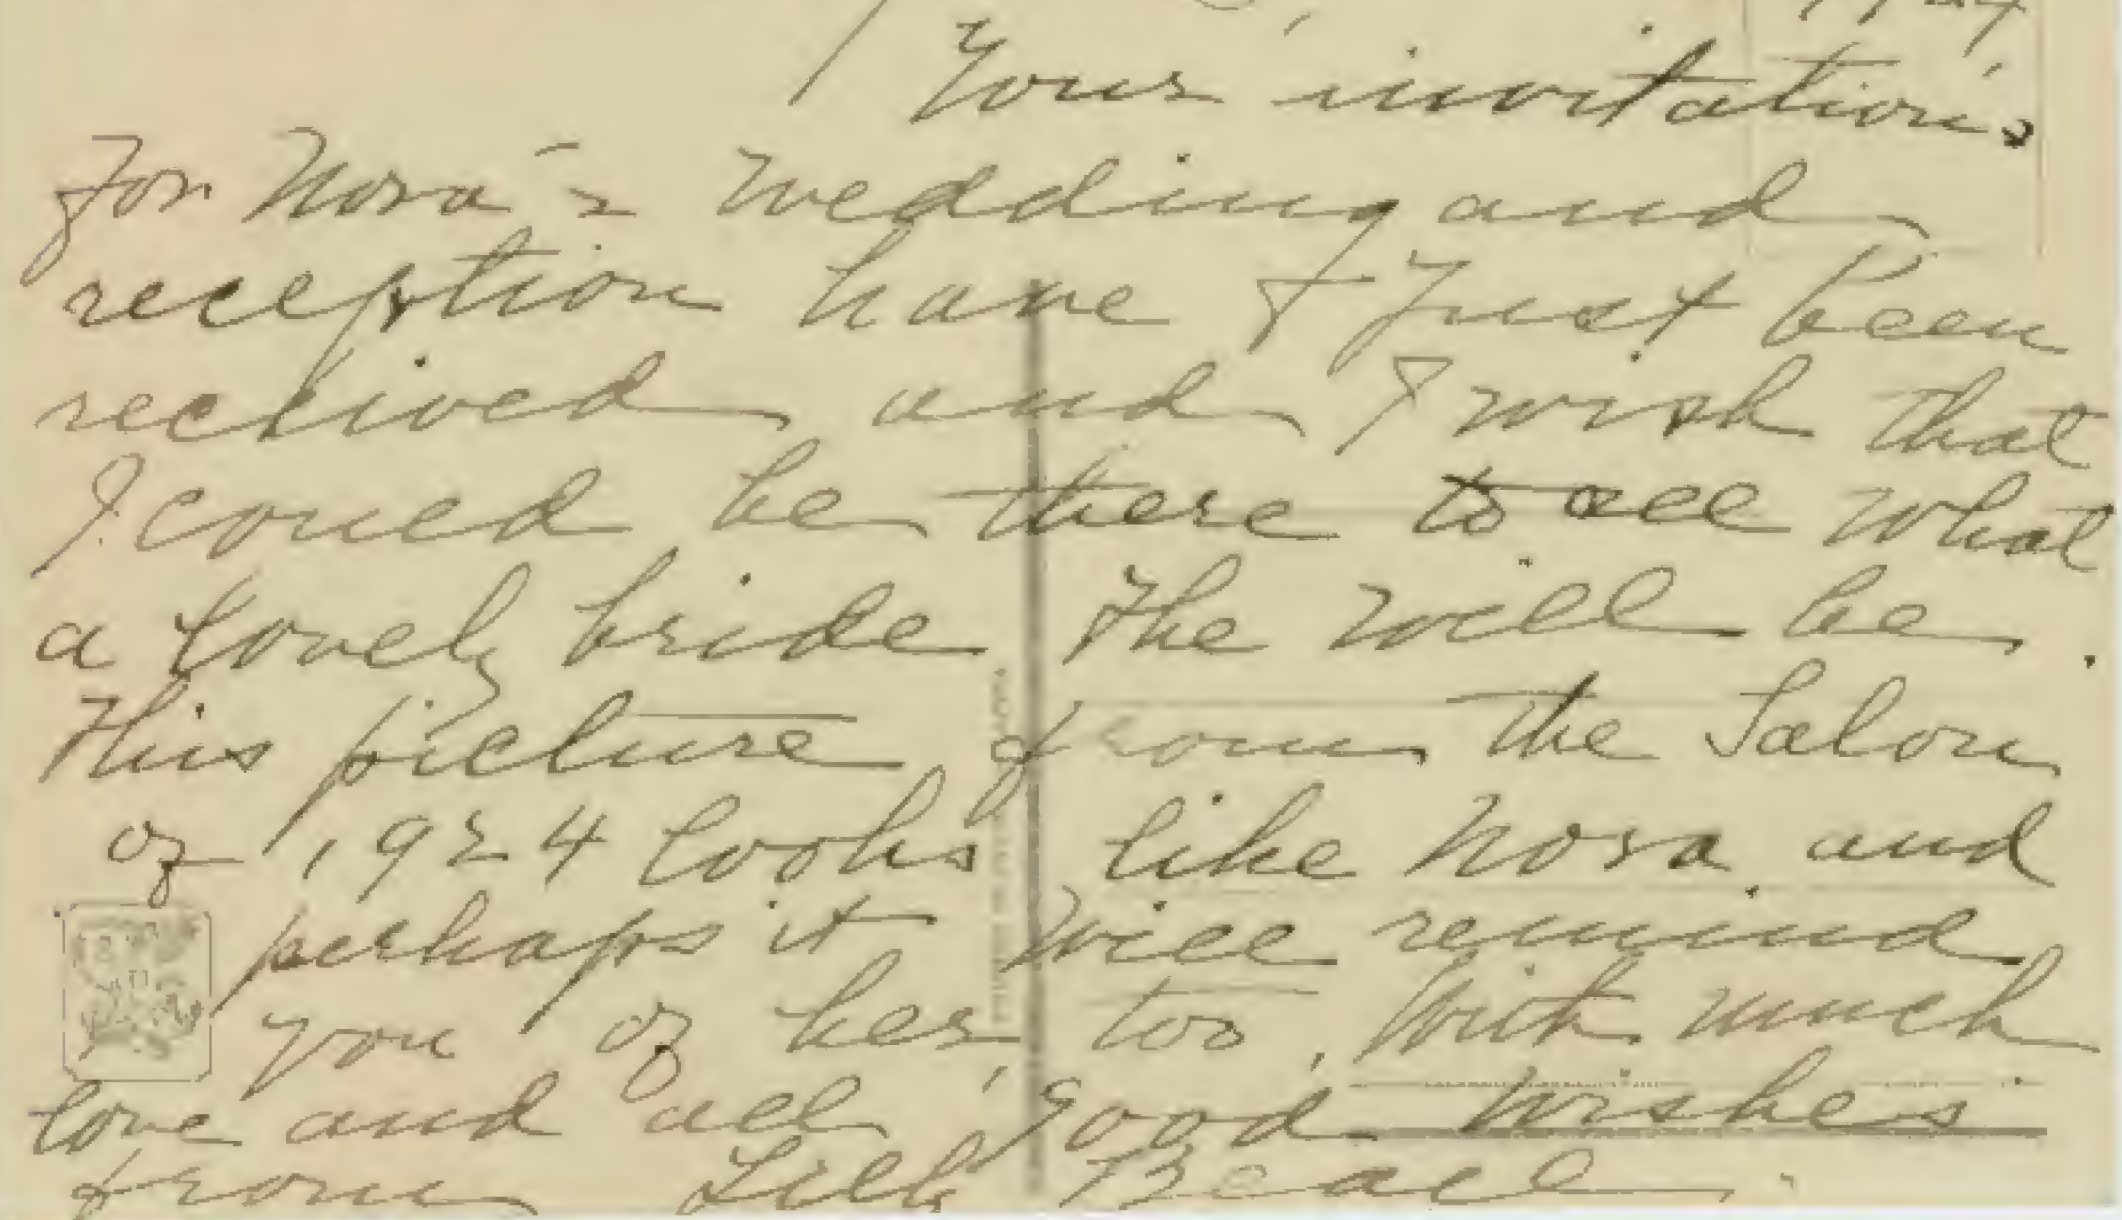 Your invitations
for Nora's wedding and
reception have just been
received and I wish that
I could be there to see what
a lovely bride she will be.
This picture from the Salon
of 1924 looks like Nora and
perhaps it will remind
you of her, too. With much
love and all good wishes
from Lilly